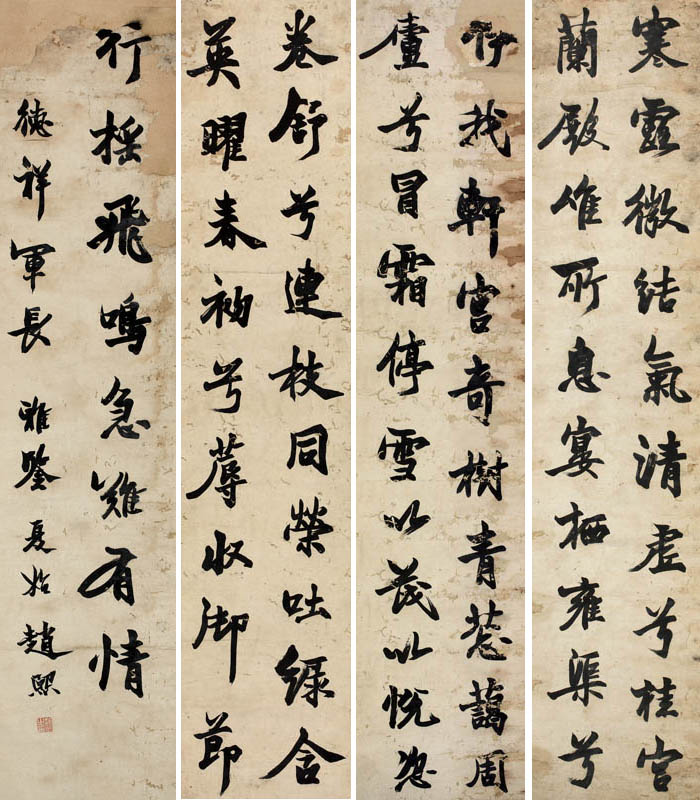 寒露微結氣清虛兮桂宮
蘭殿唯所息宴栖雍渠兮
伊我軒宮奇樹青蔥藹周
廬兮冒霜停雪以茂以悅恣
卷舒兮連枝同榮吐綠含
英曜春初兮蓐收御節
行搖飛鳴急難有情
德祥軍長 雅鑒 夏始 趙熙